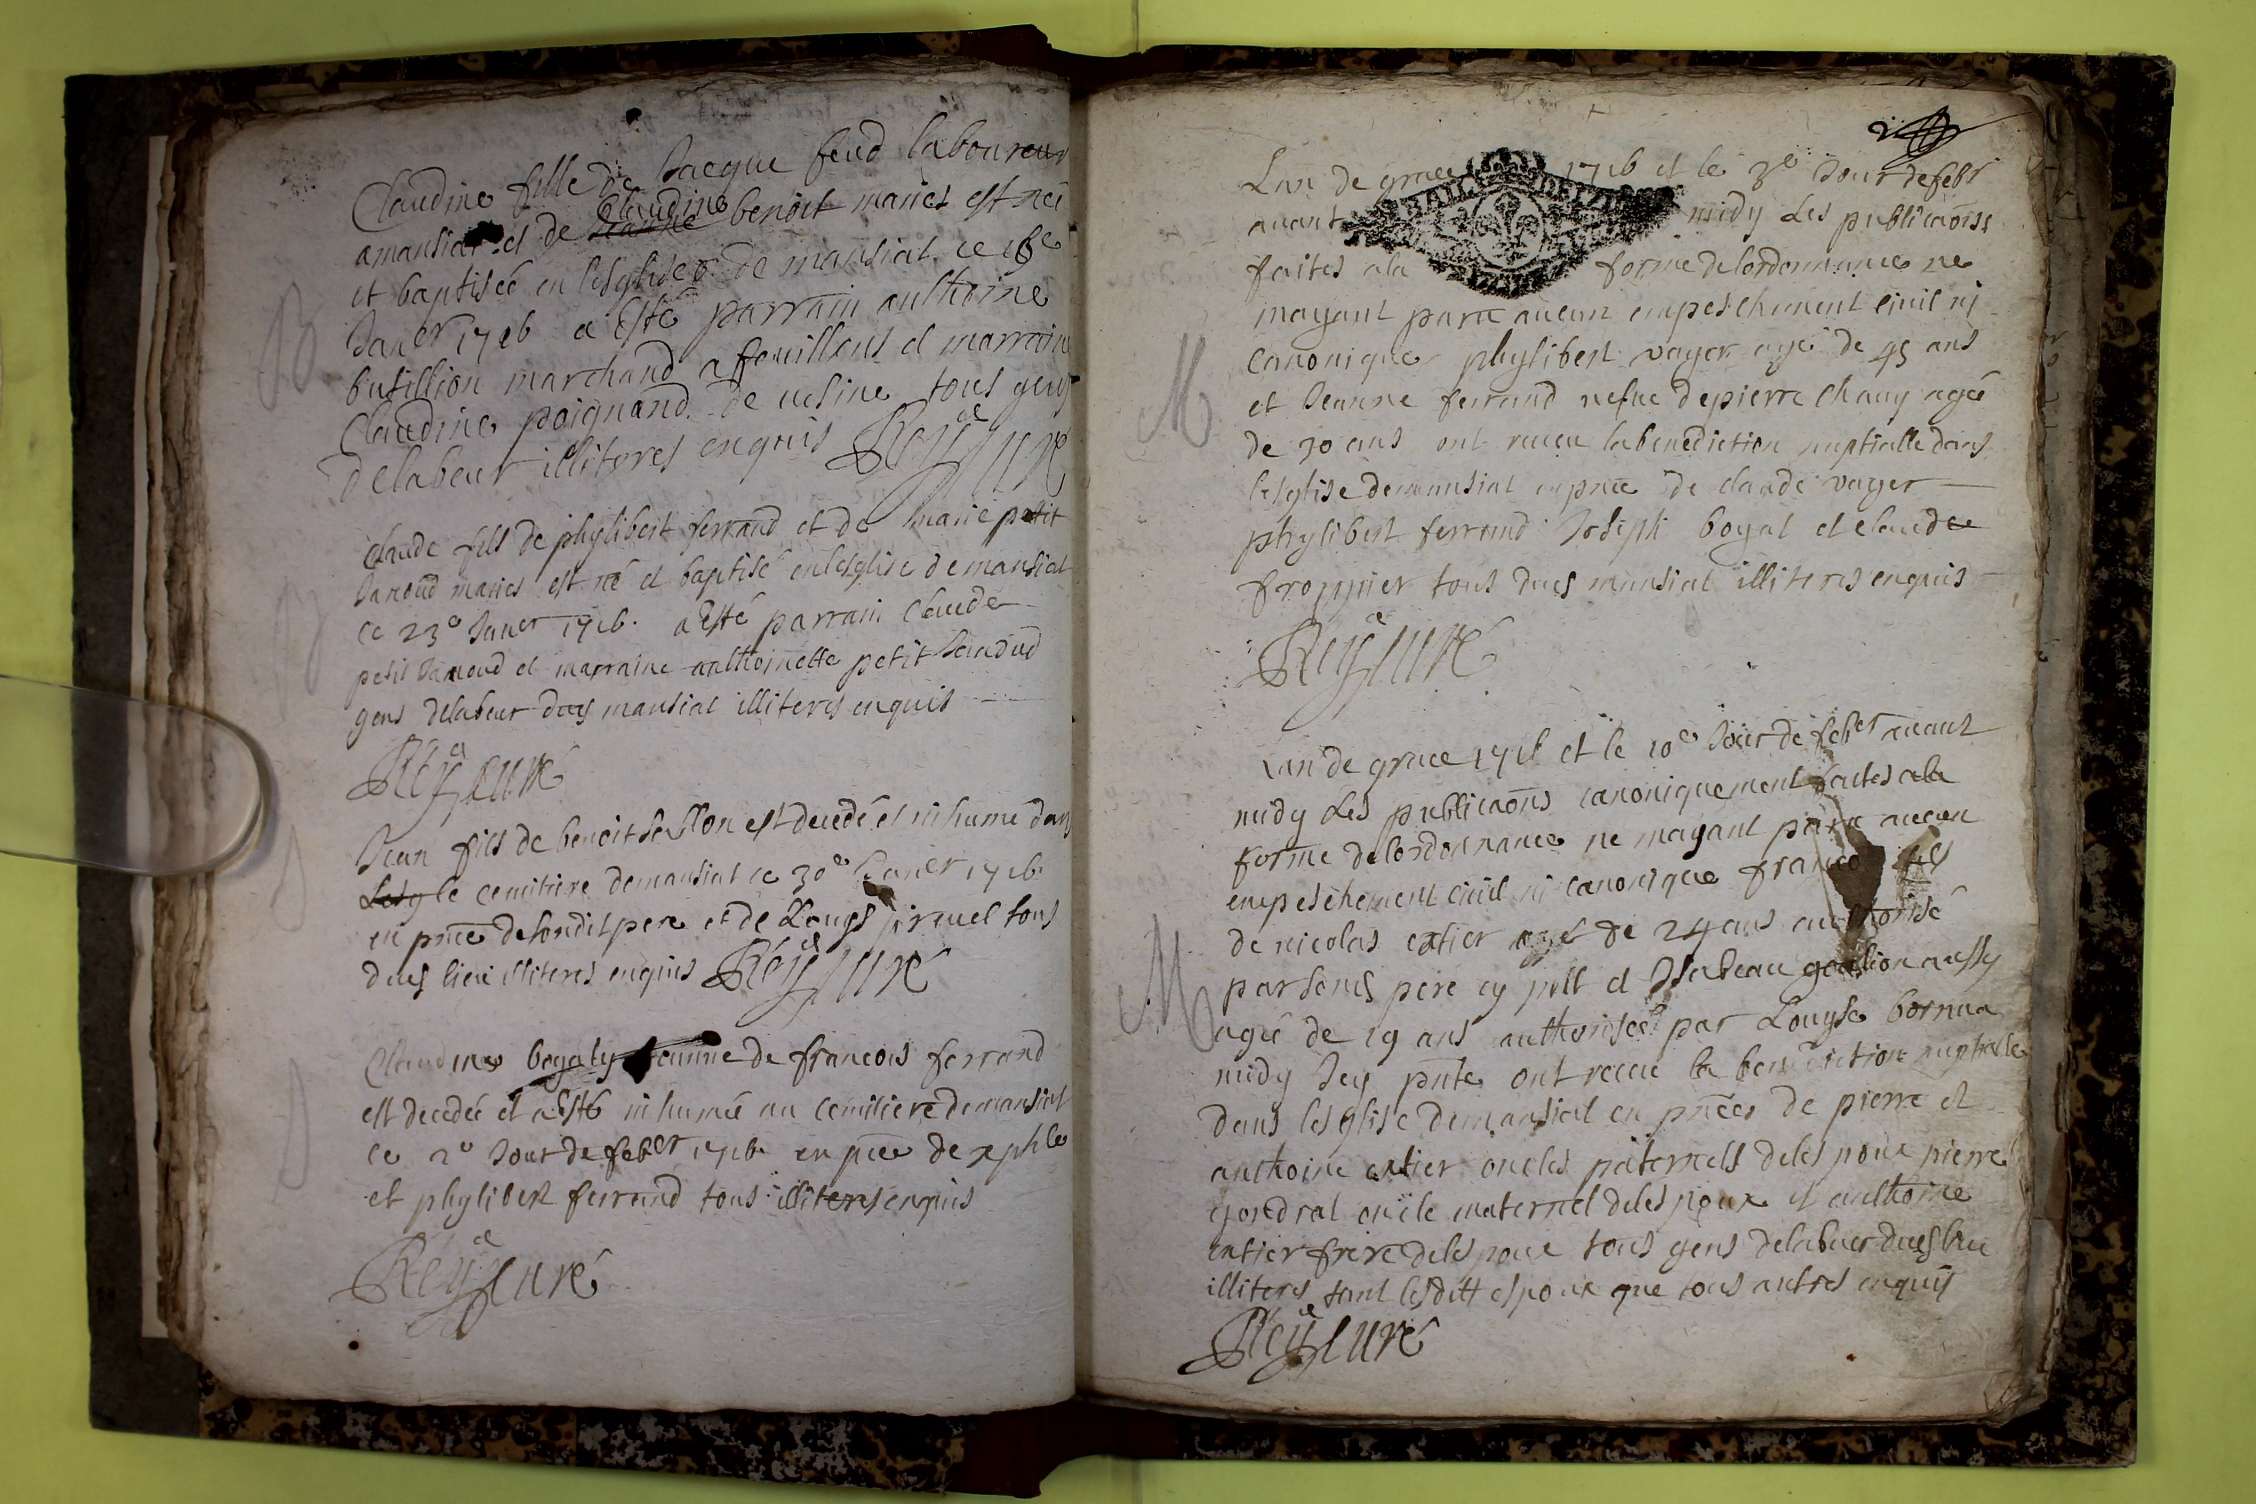 B
Claudine fille de Jacque feud laboureur
a mansiat et de Claudine benoit maries est née
et baptisée en lesglise de mansiat ce 16e
Janer 1716 a esté parrain anthoine
butillion marchand a feuillens et marraine
Claudine poignand de tous gens
delabeur illiteres enquis Rey curé
Claude fils de phylibert ferrand et de marie petit
Janoud maries est né et baptisé en lesglise de mansiat
ce 23e Janer 1716. a esté parrain Claude
petit Janoud et marraine anthoinette petit
gens delabeur duds mansiat illiteres enquis
Rey curé
Jean fils de benoit est decedé et inhumé dans
le cemitiere de mansiat ce 30e Janer 1716
en pnce de sondit pere et de Louys tous
duds lieu illiteres enquis Rey curé
Claudine femme de francois ferrand
est decedée et a esté inhumée au cemitiere de mansiat
ce 2e Jour de feber 1716 en pnce de xphle
et phylibert ferrand tous illiteres enquis
Rey curé
2
Lan de grace 1716 et le 3e Jour de febr
auant midy Les publicaons
faites a la forme de lordonnance ne
mayant paru aucun empeschement ciuil ni
M
canonique phylibert vayer agé de 45 ans
et Jeanne ferrand vefue de pierre Chauy agée
de 30 ans ont receu la benediction nuptialle dans
lesglise de mansiat en pnce de claude vayer
phylibert ferrand Joseph boyat et claude
tous duds mansiat illiteres enquis
Rey curé
Lan de grace 1716 et le 10e Jour de feber auant
midy Les publicaons canoniquement faites a la
forme de lordonnance ne mayant paru aucun
empeschement ciuil ni canonique francois fils
de nicolas catier agé de 24 ans authorisé
M
par sonds pere cy pnt et Isabeau aussy
agée de 19 ans authorisée par Louyse
midy Icy pnte ont receu la benediction nuptialle
dans lesglise de mansiat en pnces de pierre et
anthoine catier oncles paternels de lespoux pierre
gondrat oncle maternel de lespoux et anthoine
catier frere de lespoux tous gens delabeur duds lieu
illiteres tant lesditt espoux que tous autres enquis
Rey curé